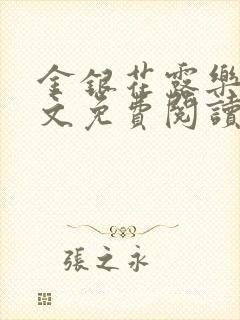 金銀花露樂
文免費閱讀
張之永